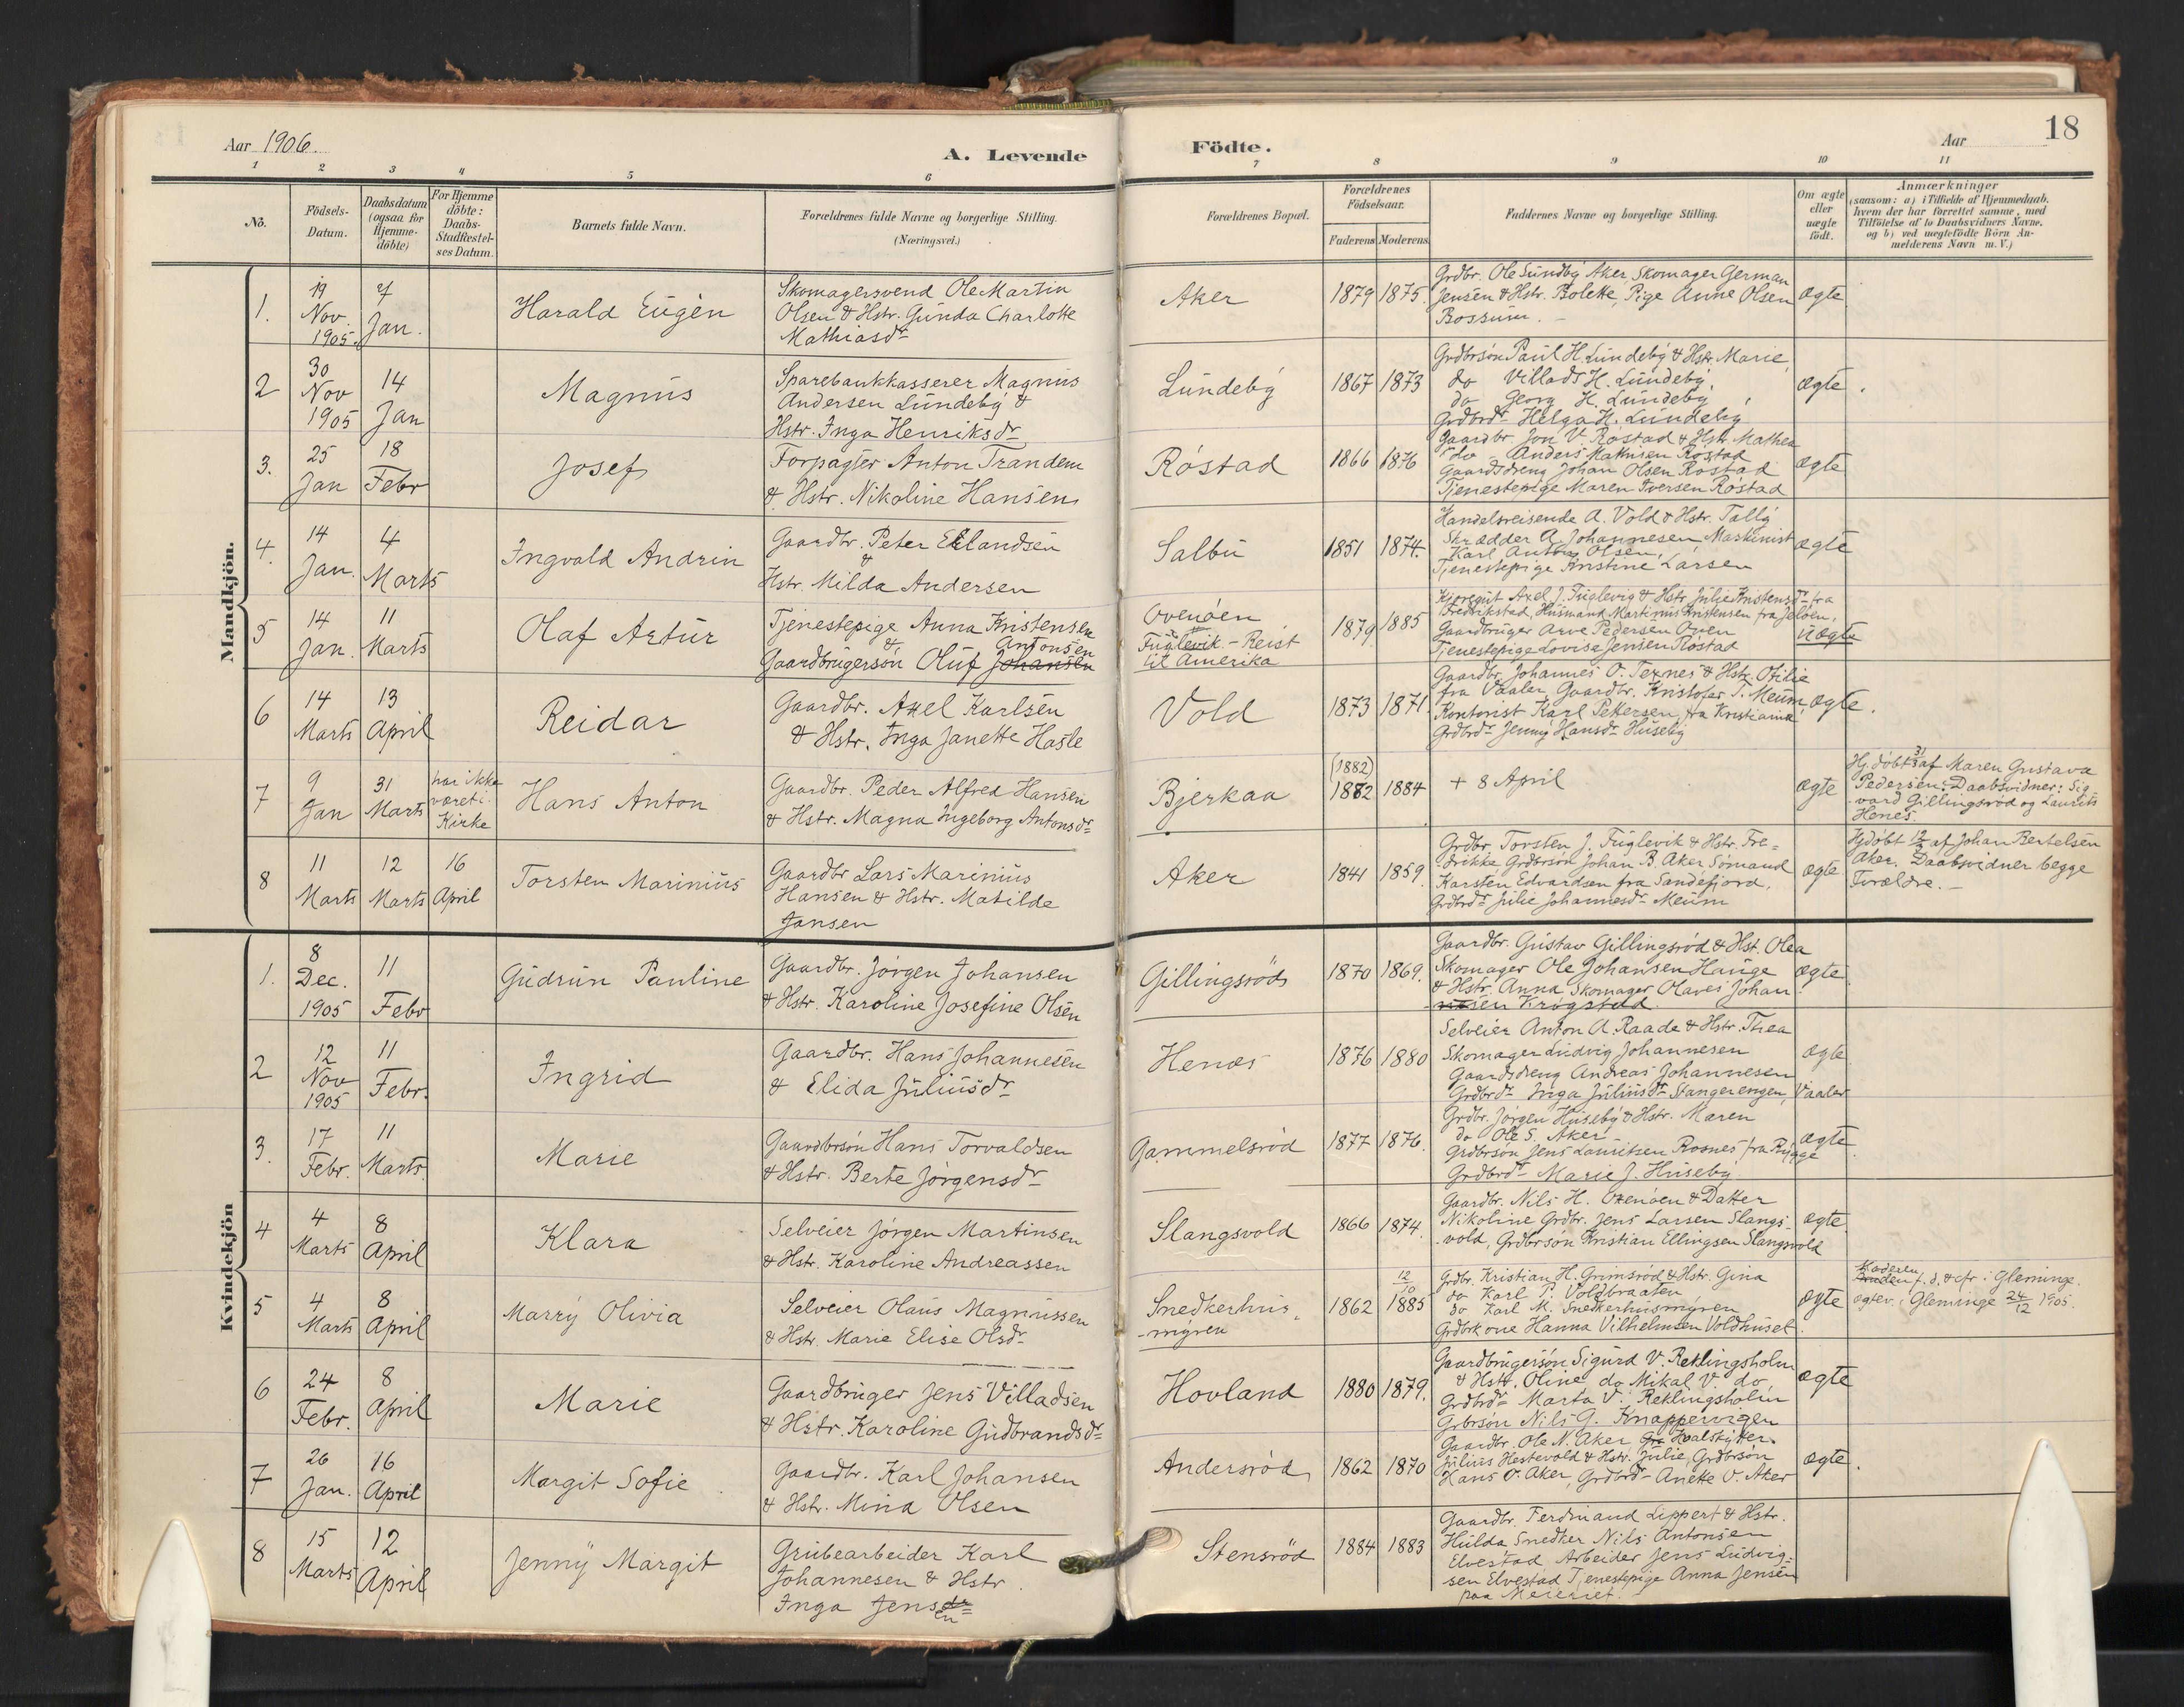 Aar 1906.
A. Levende
Födte.
Aar
18
1 2 3 4 5 6 7 8 9 10 11
No.
Födsels-Datum.
Daabsdatum (ogsaa for Hjemme-döbte)
For Hjemme döbte: Daabs-Stadfæstel-ses Datum.
Barnets fulde Navn.
Forældrenes fulde Navne og borgerlige Stilling. (Næringsvei.)
Forældrenes Bopæl.
Forældrenes Födselsaar.
Faderens Moderens
Faddernes Navne og borgerlige Stilling.
Om ægte eller uægte födt.
Anmærkninger
(saasom: a) i Tilfælde af Hjemmedaab,
hvem der har forrettet samme, med
Tilföielse af to Daabsvidners Navne.
og b) ved uægtefödte Börn An-
melderens Navn m. V.)
Mandkjön.
1. 19 Nov. 1905. 7 Jan. Harald Eugèn
Skomagersvend Ole Martin
Olsen & Hstr. Gunda Charlotte
Mathiasdr
Aker 1879 1875.
Grdbr. Ole Sundby Aker, Skomager German
Jensen & Hstr. Bolette, Pige Anne Olsen
Bossum. –
ægte
2 30 Nov 1905 14 Jan Magnus
Sparebankkasserer Magnus
Andersen Lundeby &
Hstr. Inga Henriksdr
Lundeby 1867 1873
Grdbrsön Paul H. Lundeby & Hstr. Marie,
do Villads H. Lundeby,
do Georg H. Lundeby,
Grdbrdr Helga H. Lundeby
ægte.
3. 25 Jan 18 Febr Josef
Forpagter Anton Trandem
& Hstr. Nikoline Hansen
Röstad 1866 1876
Gaardbr. Jon V. Röstad & Hstr. Mathea
do – Anders Mathisen Röstad
Gaardsdreng Johan Olsen Röstad
Tjenestepige Maren Iversen Röstad
ægte
4. 14 Jan. 4 Marts Ingvald Andrin
Gaardbr. Peter Ellandsen
&
Hstr. Milda Andersen
Salbu 1851 1874.
Handelsreisende A. Vold & Hstr. Tally
Skrædder A. Johannesen, Maskinist
Karl Anton Olsen,
Tjenestepige Kristine Larsen
ægte
5 14 Jan. 11 Marts Olaf Artur
Tjenestepige Anna Kristensen
& Antonsen
Gaardbrugersön Oluf Johansen
Ovenöen
Fuglevik – Reist
til Amerika
1879 1885
Axel J. Fuglevig & Hstr Julie Kristensdr fra
Fredrikstad, Husmand Martinius Kristensen fra Jelöen,
Gaardbruger Arve Pedersen Oven
Tjenestepige Lovise Jensen Röstad
uægte
6 14 Marts 13 April Reidar
Gaardbr. Axel Karlsen
& Hstr. Inga Janette Hasle
Vold 1873 1871.
Gaardbr. Johannes O. Texnes & Hstr. Otilie
fra Vaaler, Gaardbr. Kristofer T. Meum
Kontorist Karl Pettersen, fra Kristiania
Grdbrdr Jenny Hansdr Huseby
ægte.
7 9 Jan 31 Marts har ikke været i Kirke Hans Anton
Gaardbr. Peder Alfred Hansen
& Hstr. Magna Ingeborg Antonsdr
Bjerkaa (1882) 1882 1884
+ 8 April
ægte
Hj.döbt 31/3 af Maren Gustava
Pedersen. Daabsvidner: Sig-
vard Gillingsröd og Laurits
Henes.
8 11 Marts 12 Marts 16 April Torsten Marinius
Gaardbr Lars Marinius
Hansen & Hstr. Matilde
Jansen
Aker 1841 1859.
Grdbr. Torsten J. Fuglevik & Hstr. Fre-
drikke Grdbrsön Johan B. Aker Sömand
Karsten Edvardsen fra Sandefjord,
Grdbrdr Julie Johannesdr Meum
ægte
Hjdöbt 12/3 af Johan Bertelsen
Aker. Daabsvidner begge
Forældre. –
Kvindekjön
1. 8 Dec. 1905 11 Febr Gudrun Pauline
Gaardbr. Jörgen Johansen
& Hstr. Karoline Josefine Olsen
Gillingsröd 1870 1869.
Gaardbr. Gustav Gillingsröd & Hst. Olea
Skomager Ole Johansen Hauge
& Hstr. Anna Skomager Olaves Johan
sen Krogstad.
ægte
2 12 Nov 1905 11 Febr. Ingrid
Gaardbr. Hans Johannesen
& Elida Juliusdr
Henæs 1876 1880
Selveier Anton A. Raade & Hstr. Thea
Skomager Ludvig Johannesen
Gaardsdreng Andreas Johannesen
Grdbrdr Inga Juliusdr Stangerengen, Vaaler
ægte
3. 17 Febr. 11 Marts. Marie
Gaardbrsön Hans Torvaldsen
& Hstr. Berte Jörgensdr
Gammelsröd 1877 1876.
Grdbr. Jörgen Huseby & Hstr. Maren
do Ole S. Aker
Grdbrsön Jens Lauritsen Rosnes fra Rygge
Grdbrdr Marie J. Huseby
ægte
4 4 Marts 8 April Klara
Selveier Jörgen Martinsen
& Hstr. Karoline Andreassen
Slangsvold 1866 1874.
Gaardbr. Nils H. Oxenöen & Datter
Nikoline Grdbr. Jens Larsen Slangs-
vold, Grdbrsön Kristian Ellingsen Slangsvold
ægte
5 4 Marts 8 April Marry Olivia
Selveier Olaus Magnussen
& Hstr. Marie Elise Olsdr
Snedkerhus-
myren
1862 12/10 1885
Grdbr. Kristian H. Grimsröd & Hstr. Gina
do Karl P. Voldbraaten
do Karl M. Snedkerhusmyren
Grdbrkone Hanna Vilhelmsen Voldhuset
ægte
Moderen f. d. & cfr i Gleminge.
ægtev. i Gleminge 24/12 1905.
6 24 Febr. 8 April Marie
Gaardbruger Jens Villadsen
& Hstr. Karoline Gudbrandsdr
Hovland 1880 1879.
Gaardbrugersön Sigurd V. Reklingsholm
& Hstr. Oline do Mikal V do
Grdbrdr Marta V. Reklingsholm
Grbrsön Nils G. Knappervigen
ægte
7 26 Jan. 16 April Margit Sofie
Gaardbr. Karl Johansen
& Hstr. Mina Olsen
Andersröd 1862 1870
Gaardbr. Ole N. Aker Hvalskytter
Julius Hestevold & Hstr. Julie, Grdbrsön
Hans O. Aker, Grdbrdr Anette O. Aker
ægte.
8 15 Marts 12 April Jenny Margit
Grubearbeider Karl
Johannesen & Hstr.
Inga Jensen
Stensröd 1884 1883
Gaardbr. Ferdinand Lippert & Hstr.
Hulda Snedker Nils Antonsen
Elvestad Arbeider Jens Ludvig-
sen Elvestad Tjenestepige Anna Jensen
paa Meieriet.